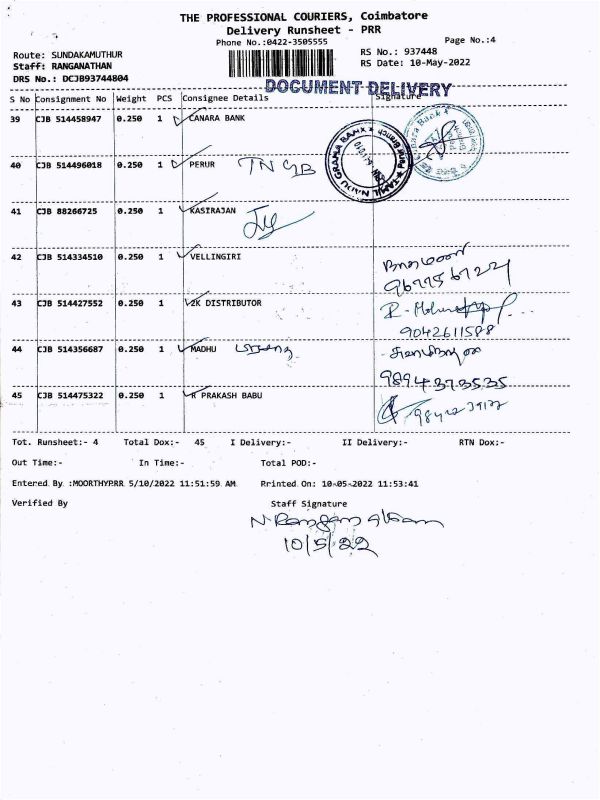 THE PROFESSIONAL COURIERS, Coimbatore
Delivery Runsheet - PRR
Phone No.:0422-3505555
Page No.:4
Route: SUNDAKAMUTHUR
RS No.: 937448
Staff: RANGANATHAN
RS Date: 10-May-2022
DRS No.: DCJB93744804
DOCUMENT DELIVERY
S No Consignment No Weight PCS Consignee Details Signature
39 CJB 514458947 0.250 1 CANARA BANK
40 CJB 514496018 0.250 1 PERUR TNGB
TAMIL NADU GRAMA BANK
41 CJB 88266725 0.250 1 KASIRAJAN
42 CJB 514334510 0.250 1 VELLINGIRI
43 CJB 514427552 0.250 1 2K DISTRIBUTOR
9042611588
44 CJB 514356687 0.250 1 MADHU
9894373535
45 CJB 514475322 0.250 1 R PRAKASH BABU
Tot. Runsheet:- 4 Total Dox:- 45 I Delivery:- II Delivery:- RTN Dox:-
Out Time:- In Time:- Total POD:-
Entered By :MOORTHYPRR 5/10/2022 11:51:59 AM Printed On: 10-05-2022 11:53:41
Verified By Staff Signature
10/5/22